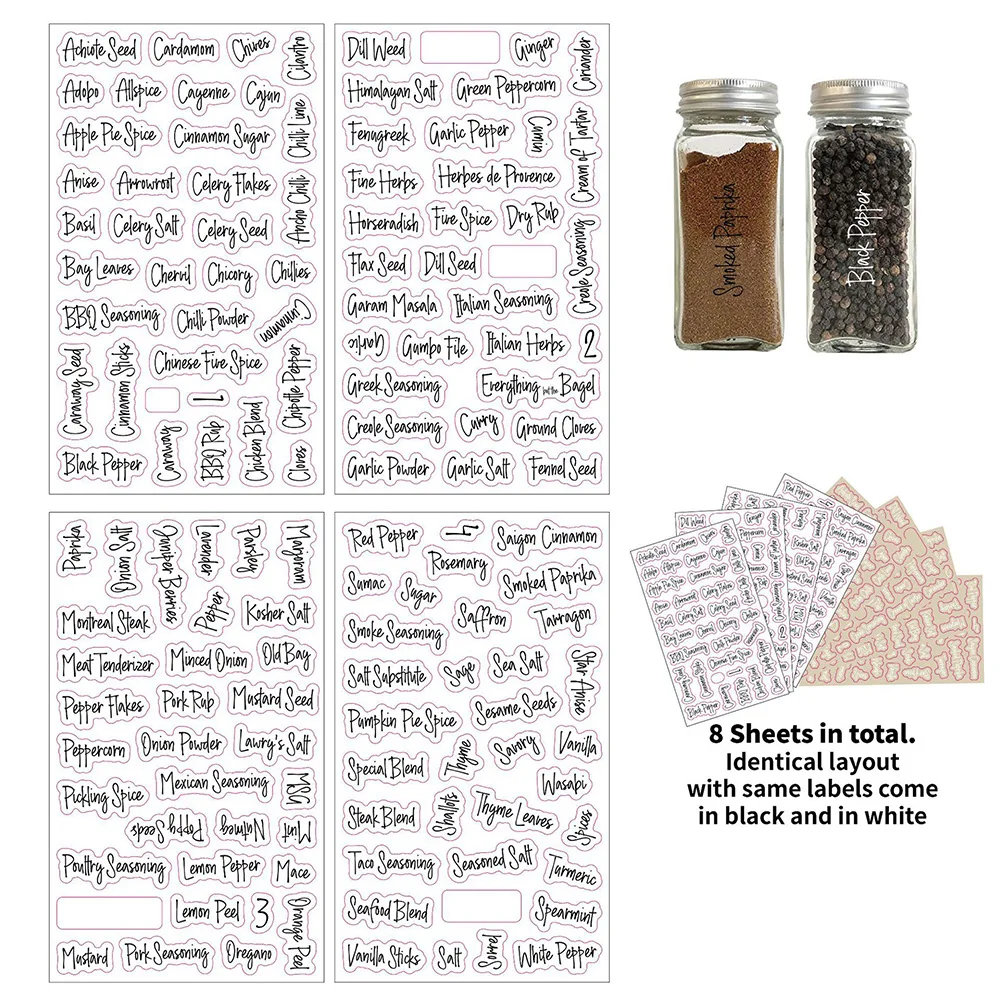 Achiote Seed
Cardamom
Chives
Cilantro
Adobo
Allspice
Cayenne
Cajun
Apple Pie Spice
Cinnamon Sugar
Chilli Lime
Anise
Arrowroot
Celery Flakes
Ancho Chilli
Basil
Celery Salt
Celery Seed
Bay Leaves
Chervil
Chicory
Chillies
BBQ Seasoning
Chilli Powder
Cinnamon
Caraway Seed
Cinnamon Sticks
Chinese Five Spice
Chipotle Pepper
1
Black Pepper
Caraway
BBQ Rup
Chicken Blend
Cloves
Dill Weed
Ginger
Coriander
Himalayan Salt
Green Peppercorn
Fenugreek
Garlic Pepper
Cumin
Cream of Tartar
Fine Herbs
Herbes de Provence
Horseradish
Five Spice
Dry Rub
Creole Seasoning
Flax Seed
Dill Seed
Garam Masala
Italian Seasoning
Garlic
Gumbo File
Italian Herbs
2
Greek Seasoning
Everything but the Bagel
Creole Seasoning
Curry
Ground Cloves
Garlic Powder
Garlic Salt
Fennel Seed
Paprika
Onion Salt
Juniper Berries
Lavender
Parsley
Marjoram
Montreal Steak
Pepper
Kosher Salt
Meat Tenderizer
Minced Onion
Old Bay
Pepper Flakes
Pork Rub
Mustard Seed
Peppercorn
Onion Powder
Lawry's Salt
Pickling Spice
Mexican Seasoning
MSG
Poppy Seeds
Nutmeg
Mint
Poultry Seasoning
Lemon Pepper
Mace
Lemon Peel
3
Orange Peel
Mustard
Pork Seasoning
Oregano
Red Pepper
4
Saigon Cinnamon
Rosemary
Sumac
Sugar
Smoked Paprika
Smoke Seasoning
Saffron
Tarragon
Salt Substitute
Sage
Sea Salt
Star Anise
Pumpkin Pie Spice
Sesame Seeds
Special Blend
Thyme
Savory
Vanilla
Wasabi
Steak Blend
Shallots
Thyme Leaves
Spices
Taco Seasoning
Seasoned Salt
Turmeric
Seafood Blend
Spearmint
Vanilla Sticks
Salt
Sorrel
White Pepper
Smoked Paprika
Black Pepper
8 Sheets in total.
Identical layout
with same labels come
in black and in white